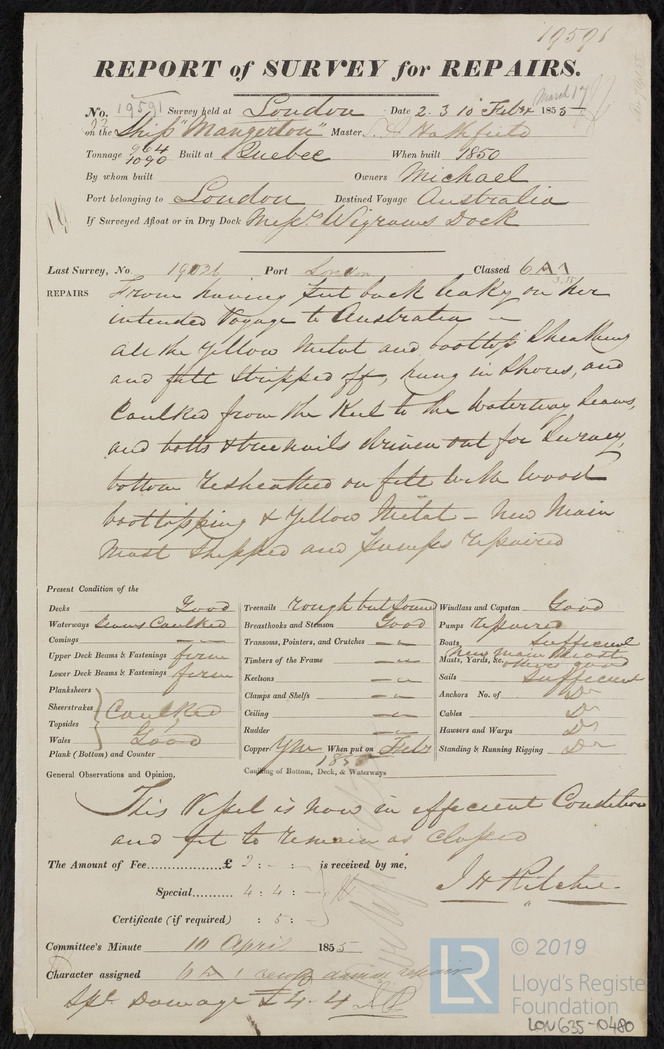 19591
REPORT of SURVEY for REPAIRS.
No. 19591 Survey held at London Date 2. 3 10 Feby March 17 1855
on the Ship "Mangerton" Master
Tonnage 964 1090 Built at Quebec When built 1850
By whom built Owners Michael
Port belonging to London Destined Voyage Australia
If Surveyed Afloat or in Dry Dock Messrs Wigrams Dock
Last Survey, No 19026 Port London Classed 6 A 1
REPAIRS From having put back leaky on her
intended Voyage to Australia —
All the Yellow Metal and boottop Sheathing
and felt stripped off, hung in Shores, and
Caulked from the Keel to the Waterway Seams,
and bolts & treenails driven out for Survey,
bottom resheathed on felt with wood
boottopping & Yellow Metal — New Main
Mast Shipped and pumps repaired
Present Condition of the
Decks Good
Waterways Seams Caulked
Comings — —
Upper Deck Beams & Fastenings firm
Lower Deck Beams & Fastenings firm
Planksheers
Sheerstrakes Caulked
Topsides
Wales Good
Plank (Bottom) and Counter
Treenails rough but sound
Breasthooks and Stemson Good
Transoms, Pointers, and Crutches — —
Timbers of the Frame — —
Keelsons — —
Clamps and Shelfs — —
Ceiling — —
Rudder — —
Copper YM When put on Feby
1855
Caulking of Bottom, Deck, & Waterways
Windlass and Capstan Good
Pumps repaired
Boats sufficient
Masts, Yards, &c. New main Mast others good
Sails Sufficient
Anchors No. of Do
Cables Do
Hawsers and Warps Do
Standing & Running Rigging Do
General Observations and Opinion,
This Vessel is now in efficient Condition
and fit to remain as classed
The Amount of Fee £ 2 : - : - is received by me,
Special 4 : 4 : -
Certificate (if required) : 5 :
J H Ritchie
Committee's Minute 10 April 1855
Character assigned 6 A 1
Spl Damage £4. 4
LR © 2019
Lloyd's Register
Foundation
LON635-0480